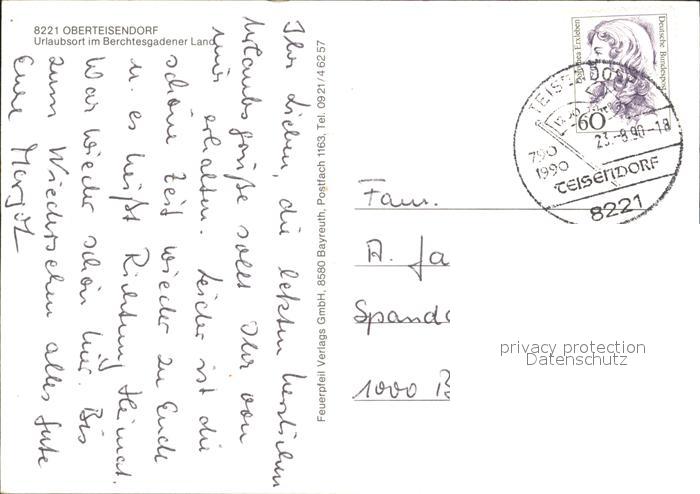 8221 OBERTEISENDORF
Urlaubsort im Berchtesgadener Land
Ihr Lieben, die letzten herzlichen
Urlaubsgrüße sollt Ihr von
mir erhalten. Leider ist die
schöne Zeit wieder zu Ende
u. es heißt Richtung Heimat.
War wieder schön hier. Bis
zum Wiedersehen alles Gute
Eure Margot
Feuerpfeil Verlags GmbH, 8580 Bayreuth, Postfach 1163, Tel. 0921/46257
Dorothea Erxleben
Deutsche Bundespost
60
TEISENDORF
23.-8.90-18
790
1990
TEISENDORF
8221
Fam.
A. Ja
Spand
1000 B
privacy protection
Datenschutz